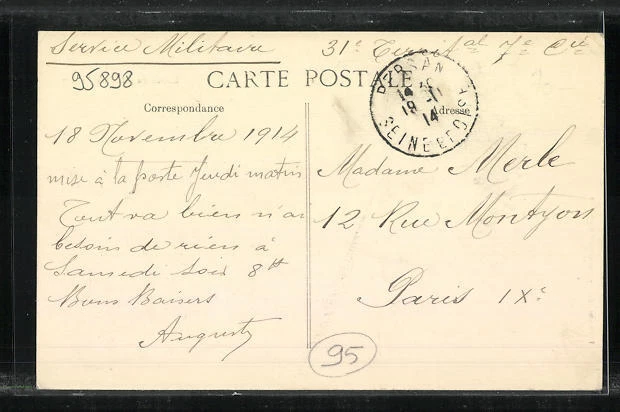 Service Militaire
31e Territ al 7e Cie
95898
CARTE POSTALE
PERSAN
14 30
19 -11
14
SEINE ET OISE
Correspondance
Adresse
18 Novembre 1914
mise à la poste Jeudi matin
Tout va bien n'ai
besoin de rien à
Samedi soir 8h
Bons Baisers
Auguste
Madame Merle
12 Rue Montyon
Paris IXe
95